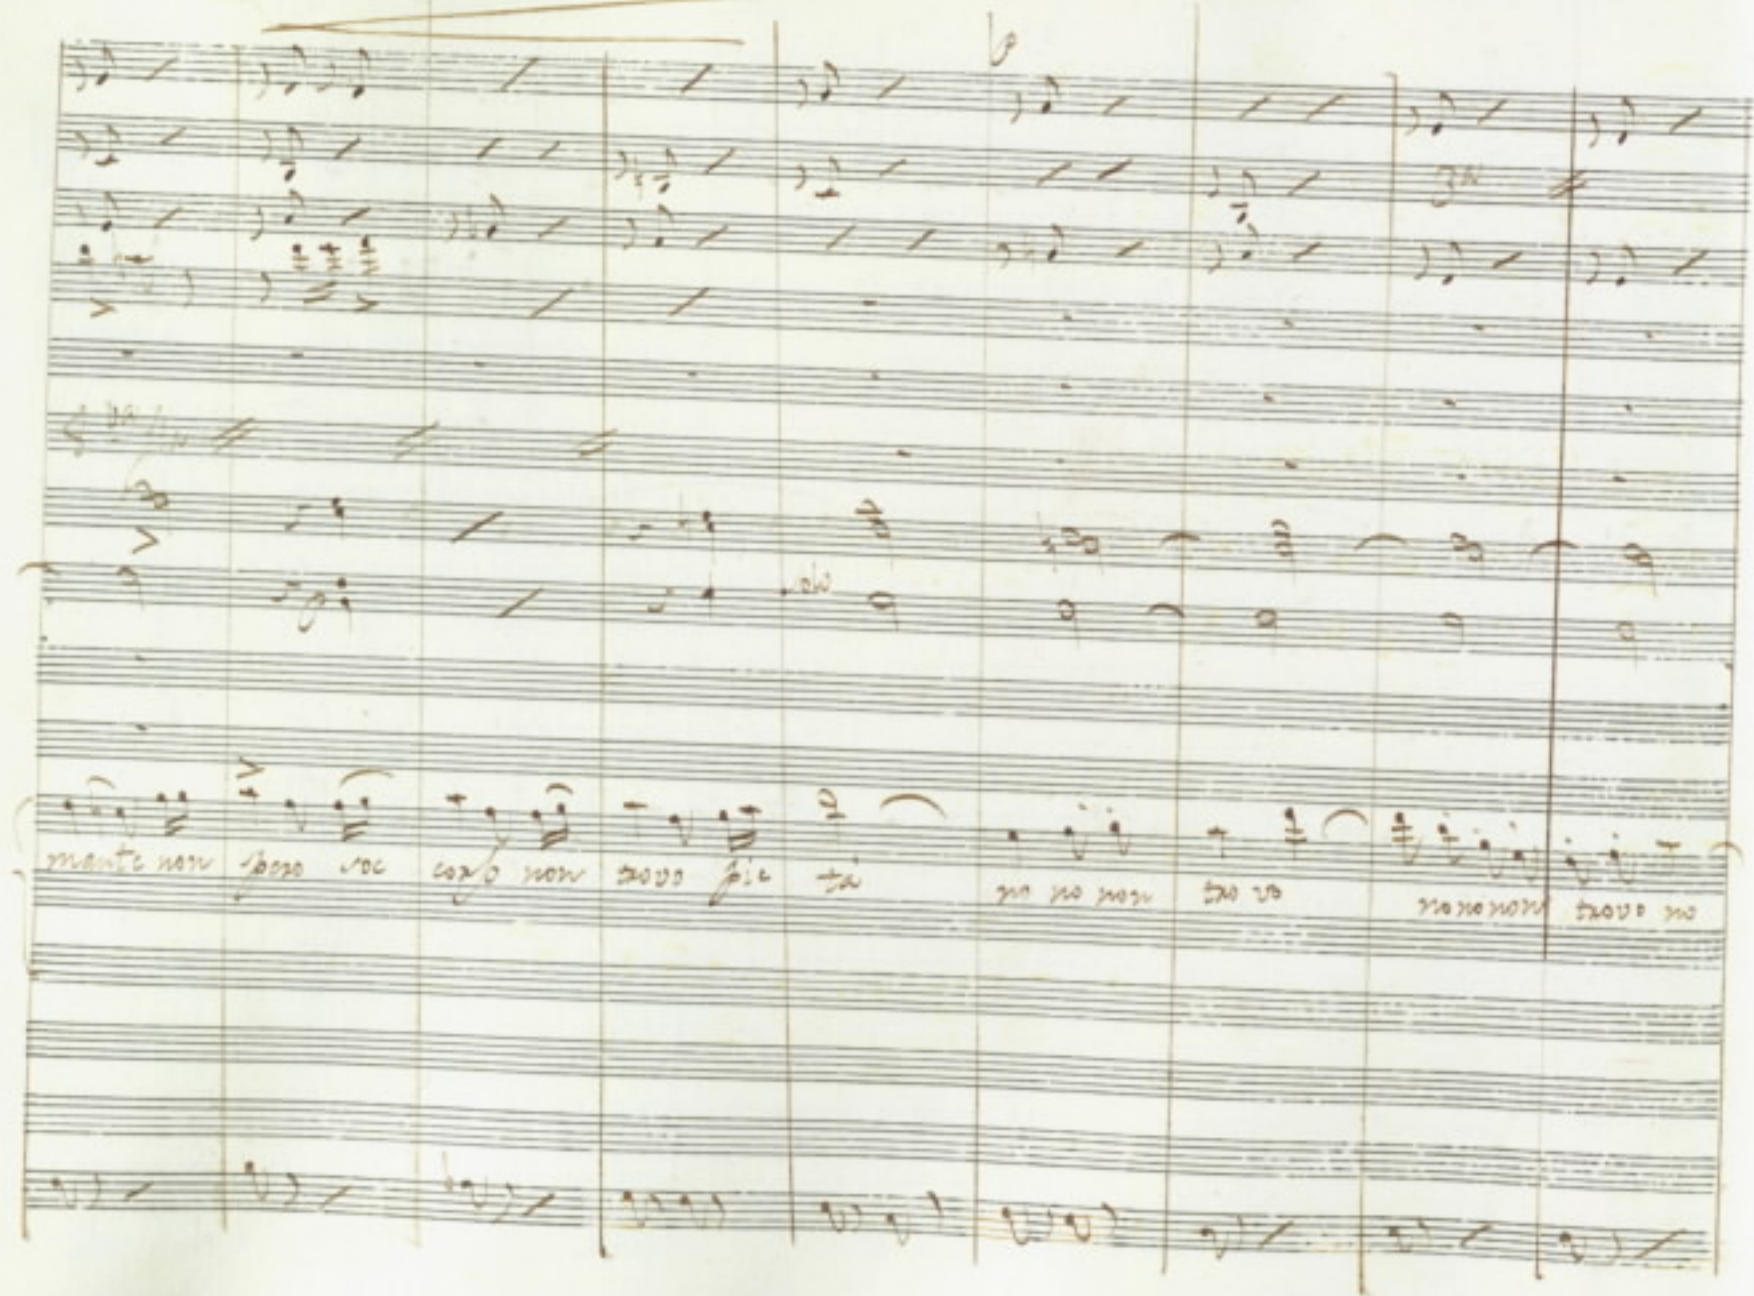 solo
mante non spero soc corso non trovo pie tà no no non tro vo no no non trovo no